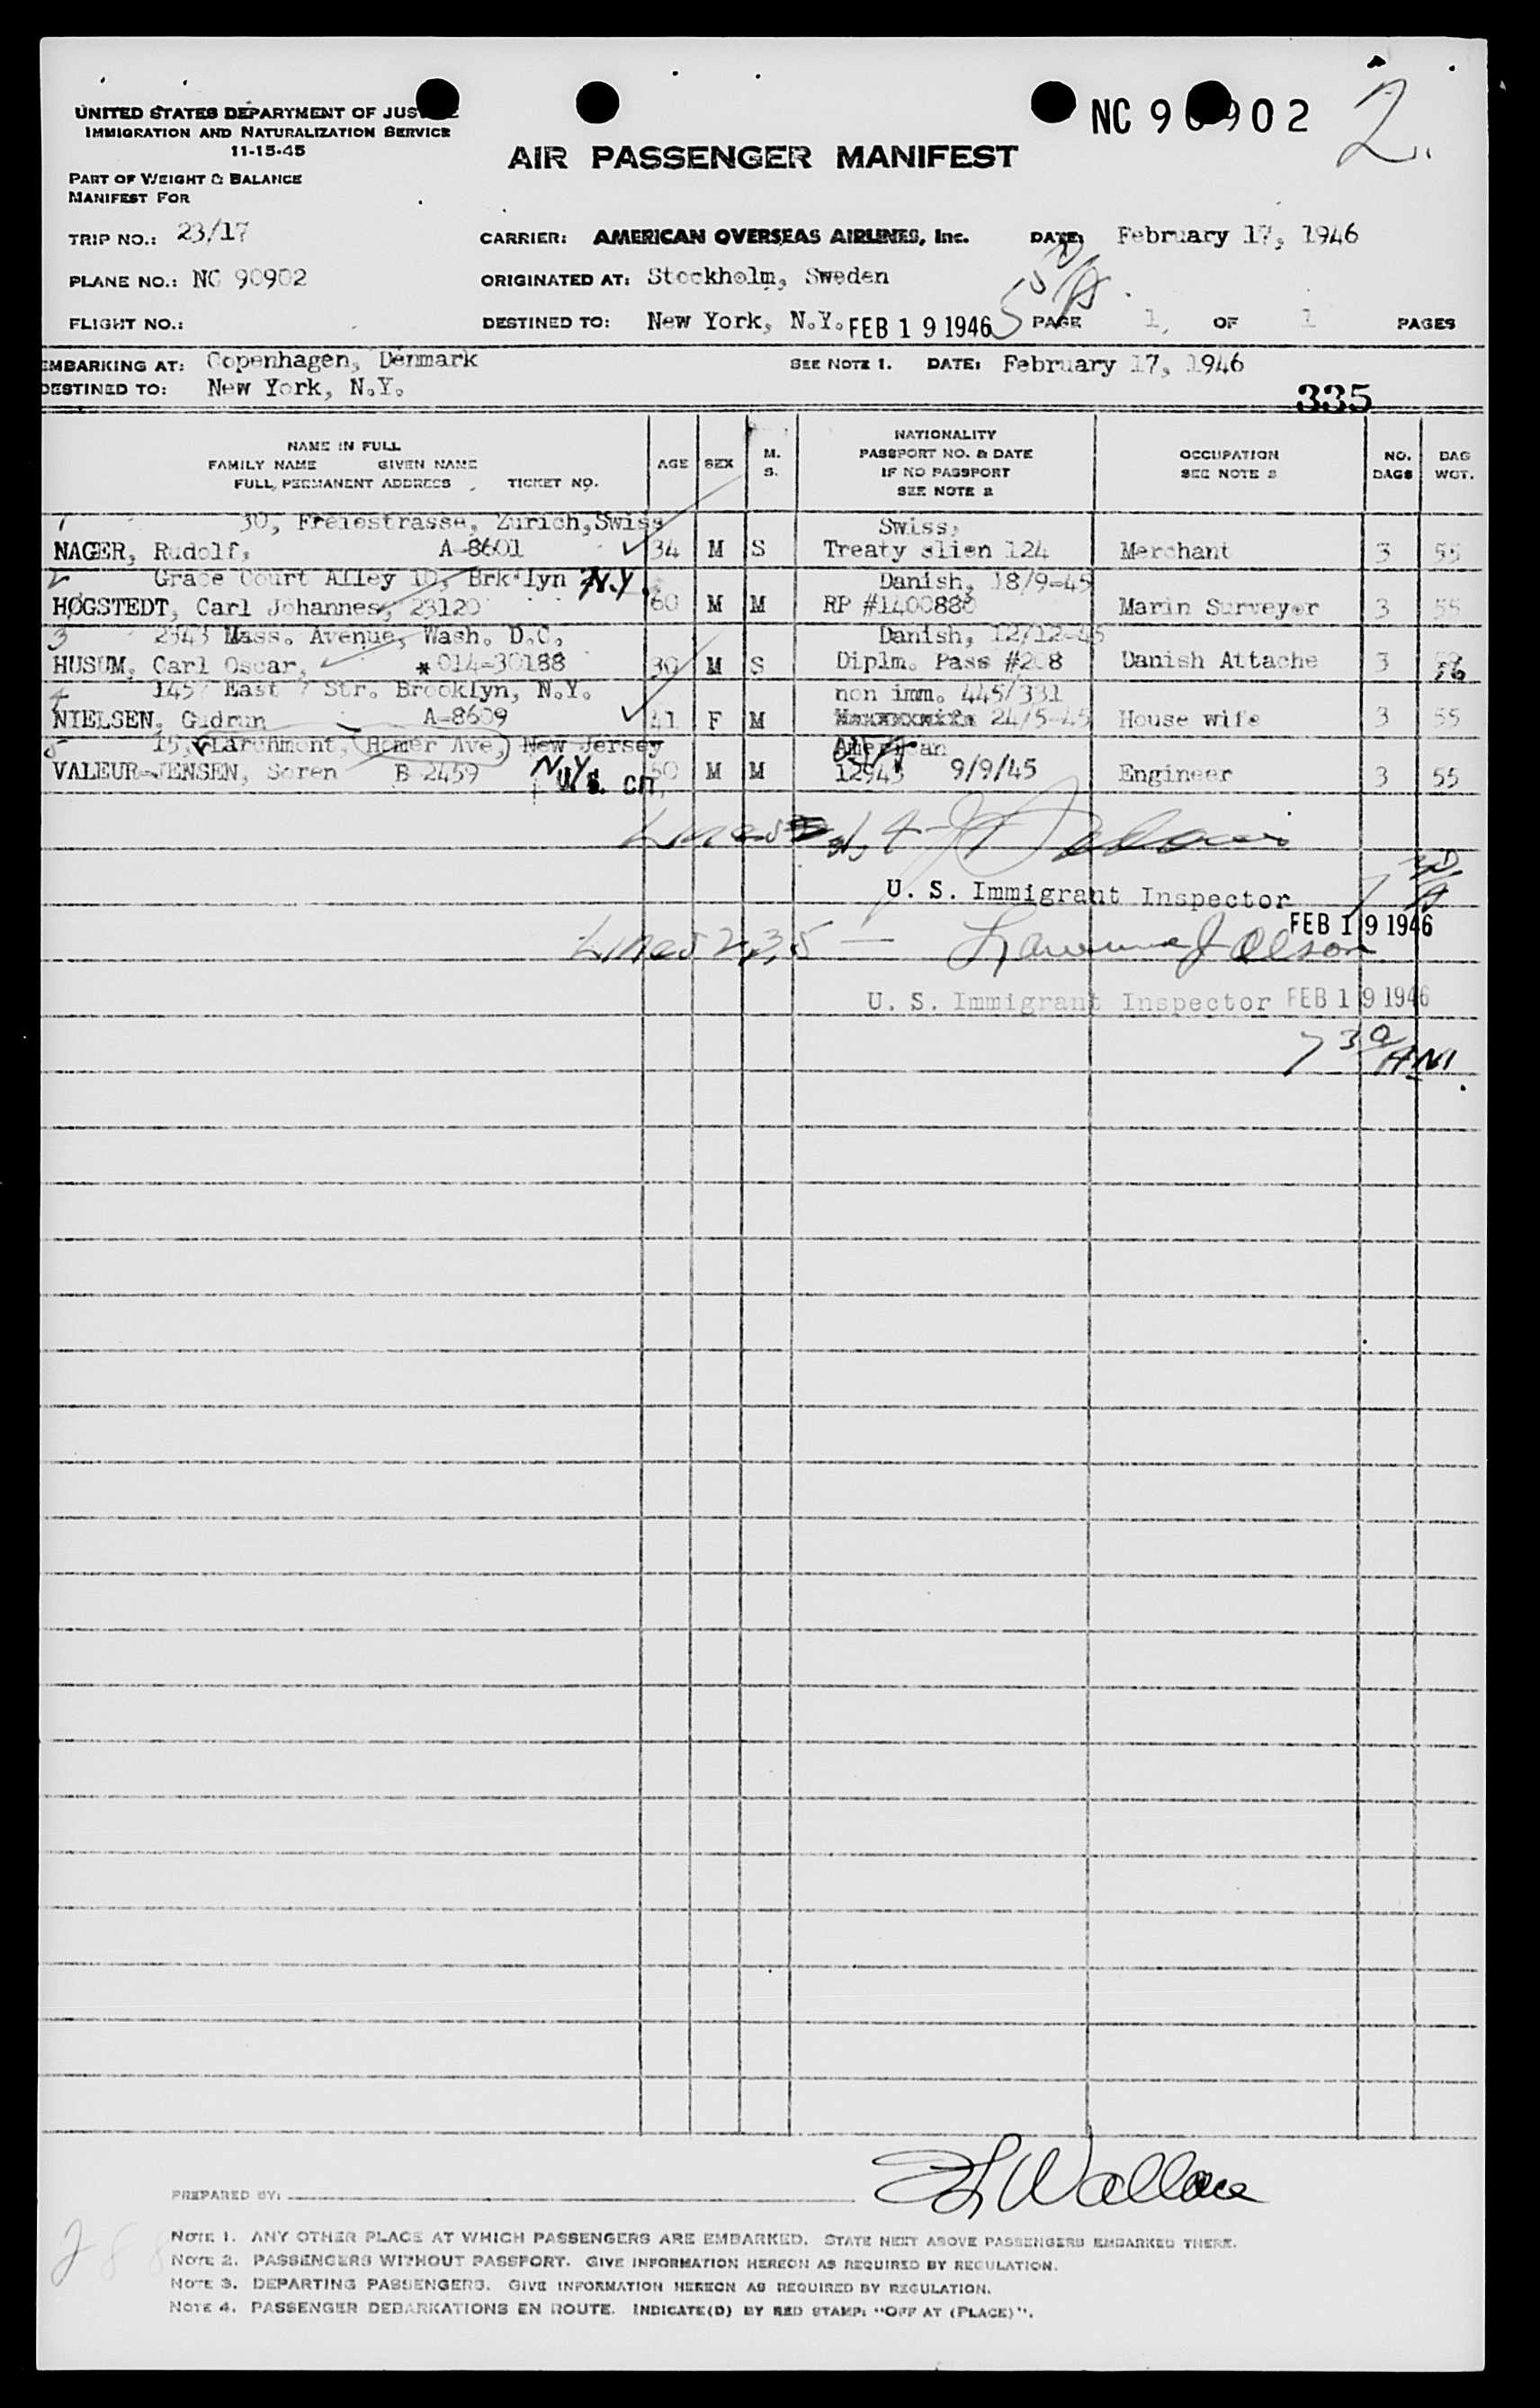 NC 90902 2.
UNITED STATES DEPARTMENT OF JUS
IMMIGRATION AND NATURALIZATION SERVICE
11-15-45
AIR PASSENGER MANIFEST
PART OF WEIGHT & BALANCE
MANIFEST FOR
TRIP NO.: 23/17 CARRIER: AMERICAN OVERSEAS AIRLINES, Inc. DATE: February 17, 1946
PLANE NO.: NC 90902 ORIGINATED AT: Stockholm, Sweden
FLIGHT NO.: DESTINED TO: New York, N.Y. FEB 19 1946 PAGE 1, OF 1 PAGES
EMBARKING AT: Copenhagen, Denmark SEE NOTE 1. DATE: February 17, 1946
DESTINED TO: New York, N.Y.
335
NAME IN FULL
FAMILY NAME GIVEN NAME
FULL PERMANENT ADDRESS TICKET NO.
AGE SEX M. S.
NATIONALITY
PASSPORT NO. & DATE
IF NO PASSPORT
SEE NOTE 2
OCCUPATION
SEE NOTE 3
NO. BAGS
BAG WGT.
1 30, Freiestrasse, Zurich, Swiss Swiss,
NAGER, Rudolf, A-8601 34 M S Treaty alien 124 Merchant 3 55
2 Grace Court Alley 10, Brk'lyn N.Y. Danish, 18/9-45
HØGSTEDT, Carl Johannes, 23120 60 M M RP #1400880 Marin Surveyor 3 55
3 2343 Mass. Avenue, Wash. D.C. Danish, 12/12-45
HUSUM, Carl Oscar, *014-30188 30 M S Diplm. Pass #208 Danish Attache 3 76
4 1457 East 7 Str. Brooklyn, N.Y. non imm. 445/331
NIELSEN, Gudrun A-8609 41 F M 24/5-45 House wife 3 55
5 15, Larchmont, Homer Ave, New Jersey American
VALEUR-JENSEN, Soren B 2459 N.Y. U.S. Cit. 50 M M 12943 9/9/45 Engineer 3 55
Lines 1, 4
U. S. Immigrant Inspector
FEB 19 1946
Lines 2, 3, 5 — Lawrence J Olson
U. S. Immigrant Inspector FEB 19 1946
7 30 AM
PREPARED BY: Wallace
NOTE 1. ANY OTHER PLACE AT WHICH PASSENGERS ARE EMBARKED. STATE NEXT ABOVE PASSENGERS EMBARKED THERE.
NOTE 2. PASSENGERS WITHOUT PASSPORT. GIVE INFORMATION HEREON AS REQUIRED BY REGULATION.
NOTE 3. DEPARTING PASSENGERS. GIVE INFORMATION HEREON AS REQUIRED BY REGULATION.
NOTE 4. PASSENGER DEBARKATIONS EN ROUTE. INDICATE(D) BY RED STAMP: "OFF AT (PLACE)".